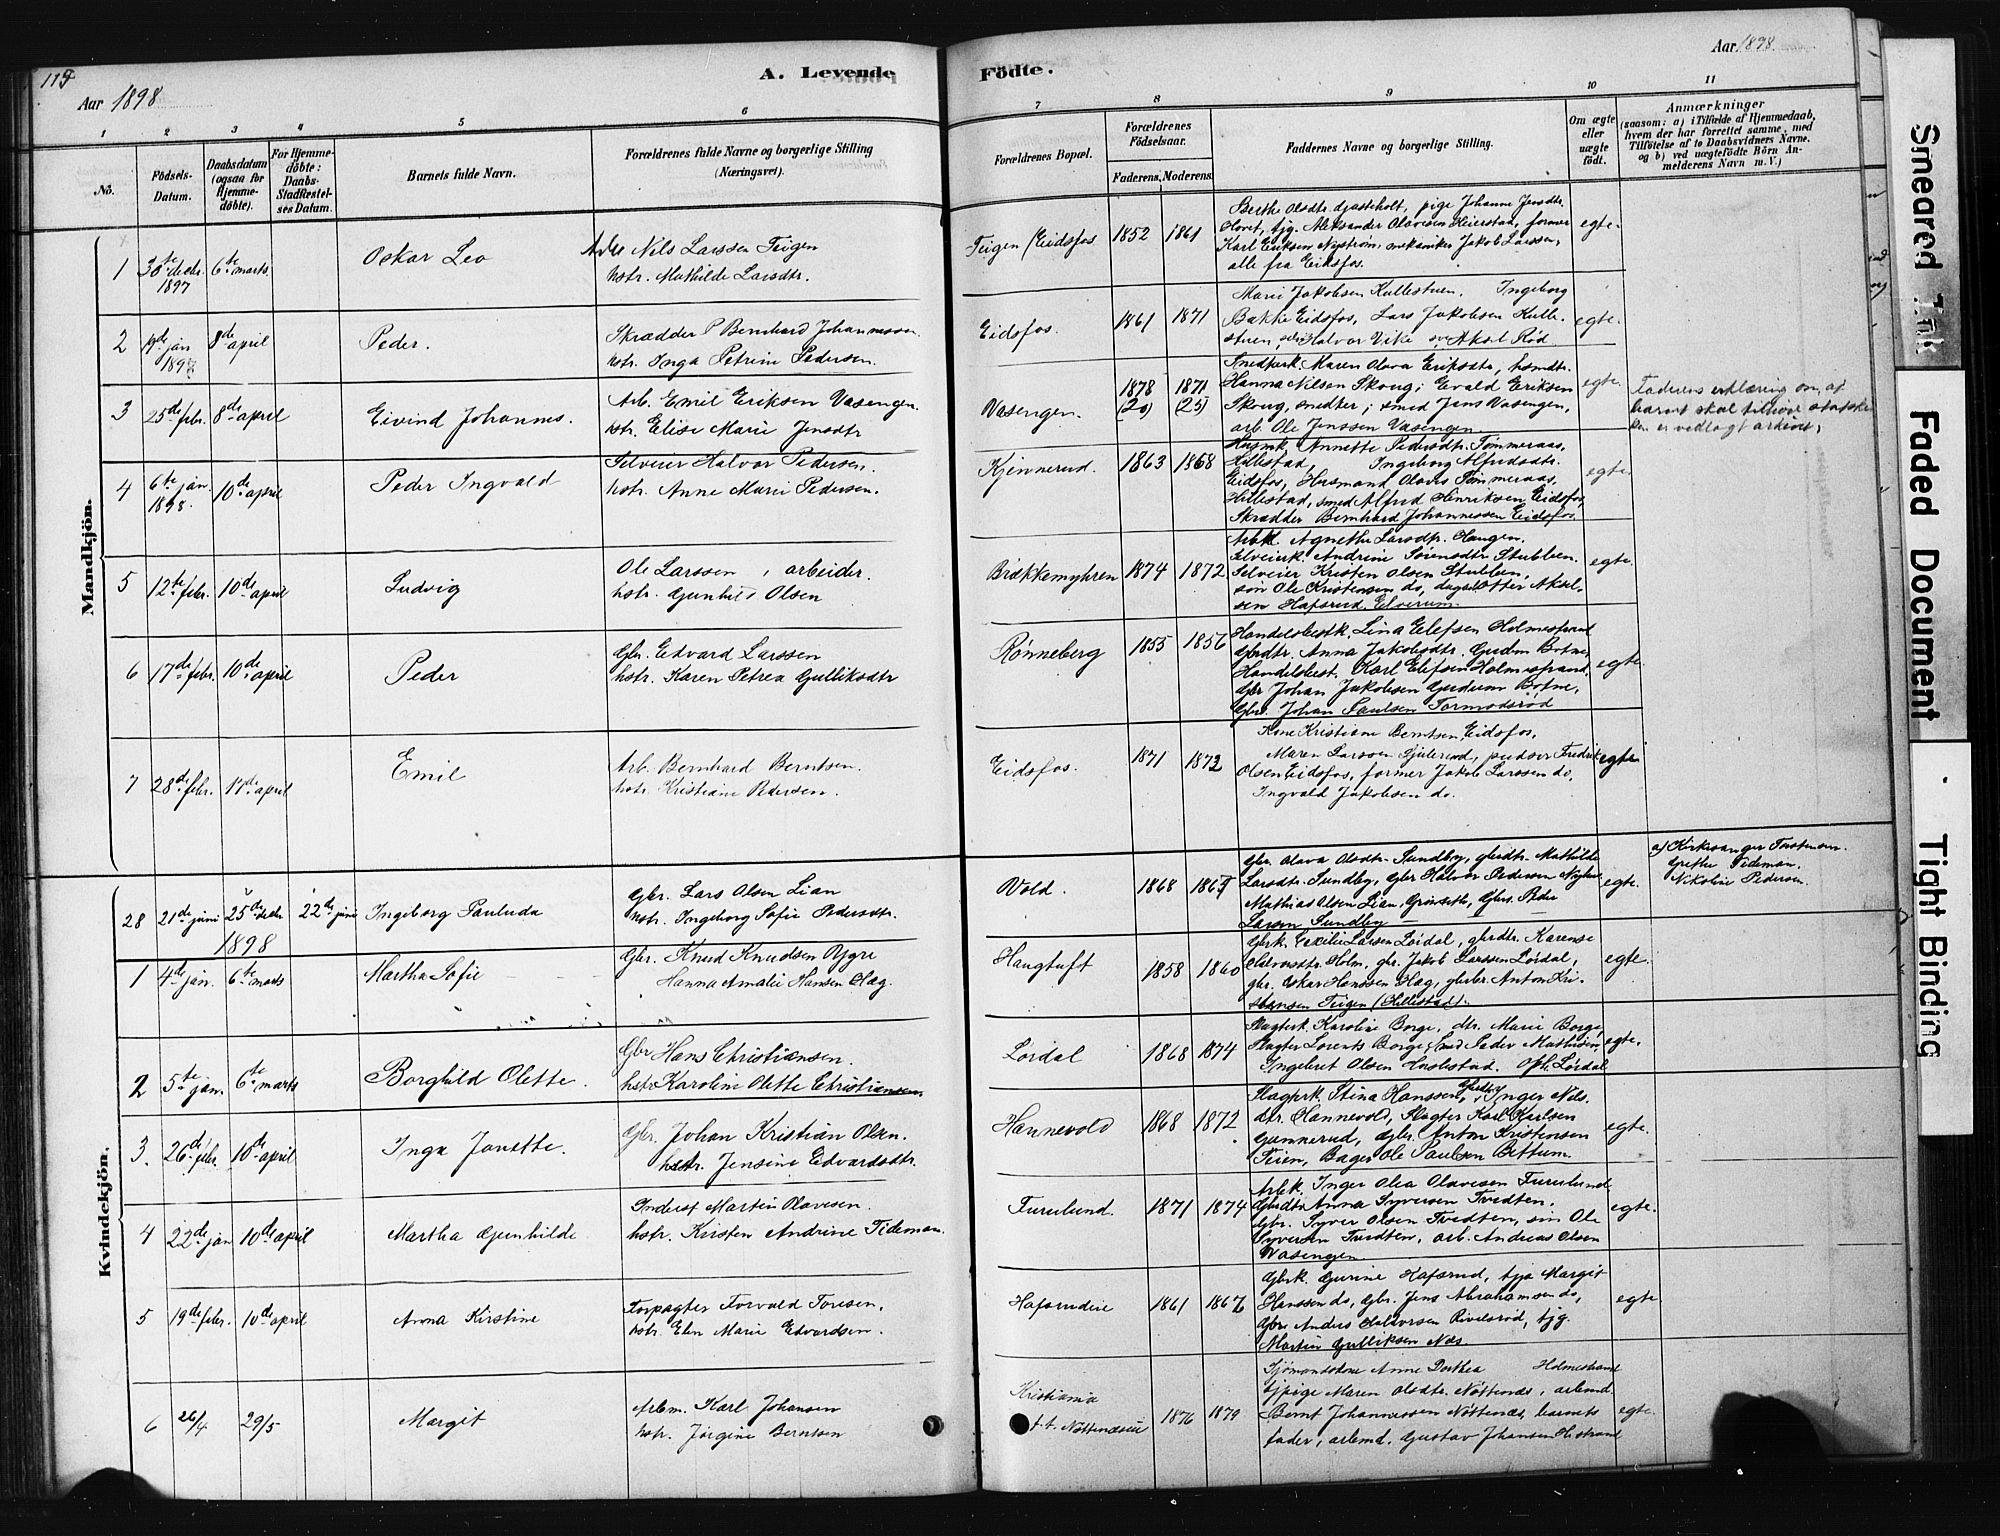 115
Aar 1898
A. Levende
Födte.
Aar 1898
1
2
3
4
5
6
7
8
9
10
11
No.
Födsels-
Datum.
Daabsdatum
(ogsaa for
Hjemme-
döbte).
For Hjemme-
döbte:
Daabs-
Stadfæstel-
ses Datum.
Barnets fulde Navn.
Forældrenes fulde Navne og borgerlige Stilling
(Næringsvei).
Forældrenes Bopæl.
Forældrenes
Födselsaar.
Faderens.
Moderens.
Faddernes Navne og borgerlige Stilling.
Om ægte
eller
uægte
födt.
Anmærkninger
(saasom: a) i Tilfælde af Hjemmedaab,
hvem der har forrettet samme, med
Tilföielse af to Daabsvidners Navne.
og b) ved uægtefödte Börn An-
melderens Navn m. V.)
Mandkjön.
1
30te decbr.
1897
6te marts
Oskar Leo
Arb. Nils Larssen Teigen
hstr. Mathilde Larsdtr.
Teigen (Eidsfos
1852
1861
Berthe Olsdtr. , pige Johanne Jensdtr.
Hovet, tjg. Aleksander Olavesen , former
Karl Eriksen Nystrøm, mekaniker Jakob Larssen,
alle fra Eidsfos.
egte.
2
19de jan
1898
8de april
Peder.
Skrædder P Bernhard Johannessen
hstr. Inga Petrine Pedersen.
Eidsfos.
1861
1871
Marie Jakobsen Kullestuen. Ingeborg
Bakke Eidsfos, Lars Jakobsen Kulle-
stuen, Halvor Vike Aksel Rød.
egte.
3
25de febr.
8de april
Eivind Johannes.
Arb. Emil Eriksen Vasengen.
hstr. Elise Marie Jensdtr
Vasengen.
1878
(20)
1871
(25)
Maren Olava Eriksdtr,
Hanna Nilsen Skoug; Evald Eriksen
Skoug, smedter; smed Jens Vasengen,
arb. Ole Jenssen Vasengen
egte.
Faderens erklæring om, at
barnet skal tilhøre statskir-
ken er vedlagt arkivet,
4
6te jan.
1898.
10de april
Peder Ingvald
Selveier Halvor Pedersen.
hstr. Anne Marie Pedersen.
Kjennerud.
1863
1868
Husmk. Annette Pedersdtr. Tømmeraas,
Hillestad, Ingeborg Alfredsdtr.
Eidsfos, Husmand Olaves Tømmeraas,
Hillestad, smed Alfred Henriksen Eidsfos,
Skrædder Bernhard Johannessen Eidsfos.
egte.
5
12te febr.
10de april
Ludvig
Ole Larssen, arbeider.
hstr. Gunhild Olsen
Brækkemyhren
1874
1872.
Arbk. Agnethe Larsdtr. Haugen.
Selveierk. Andrine Sørensdtr. Stubben.
Selveier Kristen Olsen Stubben,
søn Ole Kristensen do, Otter Aksel-
sen Hafsrud. Elverum.
egte.
6
17de febr.
10de april
Peder
Gbr. Edvard Larssen
hstr. Karen Petrea Gulliksdtr
Rønneberg
1855
1856
Handelsbestk. Lina Elefsen Holmestrand
Gbrdtr. Anna Jakobsdtr. Gudum Botne,
Handelsbest. Karl Elefsen Holmestrand,
Gbr Johan Jakobsen Gudum Botne,
Gbr. Johan Paulsen Tormodsrød
egte.
7
28de febr.
17de april
Emil
Arb. Bernhard Berntsen.
hstr. Kristiane Pedersen.
Eidsfos.
1871
1872
Kristiane Berntsen Eidsfos,
Maren Larssen , pudser Fredrik
Olsen Eidsfos, former Jakob Larssen do,
Ingvald Jakobsen do.
egte
Kvindekjön.
28
21de juni
25de decbr
22de juni
Ingeborg Paulina
Gbr. Lars Olsen Lian
hstr. Ingeborg Sofie Pedersdtr.
Vold.
1868
1867
Gbr. Olava Olsdtr. Sundby, gbrdtr. Mathilde
Larsdtr. Sundby, Gbr Halvor Pedersen
Mathias Olsen Lian, , Gbrs. Peder
Larsen Sundby
egte.
a) Kirkesanger Torstensen.
Grethe Tideman.
Nikoline Pedersen.
1898
1
4de jan.
6te marts
Martha Sofie
Gbr. Knud Knudsen Rygre
Hanna Amalie Hansen Hæg.
Haugtuft
1858
1860
Gbrk. Cecilie Larsen Lørdal, gbrdtr. Karense
Halvorsdtr. Holm, gbr. Jakob Larssen Lørdal,
gbr. Oskar Hanssen Hæg, gbrbr. Anton Kri-
stensen Teigen (Hillestad).
egte.
2
5te jan.
6te marts
Borghild Olette.
Gbr Hans Christiansen.
hstr Karoline Olette Christiansen
Lørdal
1868
1874
Slagterk. Karoline Borge, dtr. Marie Borge,
Slagter Lorents Borge, Peder Mathisen,
Ingebret Olsen Lørdal
egte.
3.
26de febr.
10de april
Inga Janette.
Gbr. Johan Kristian Olsen.
hstr. Jensine Edvardsdtr.
Hannevold
1868
1872
Slagterk. Stina Hanssen, Inger Nils-
dtr. Hannevold, Slagter Karl Karlsen
Gunnerud, Gbr. Anton Kristensen
Teien, Bager Ole Paulsen Bettum.
egte.
4
22de jan
10de april
Martha Gunhilde
Inderst Martin Olavesen.
hstr. Kirsten Andrine Tideman.
Furulund.
1871
1874
Arbk. Inger Olea Olavesen Furulund
Gbrdtr Anna Syversen Tvedten,
Gbr. Syver Olsen Tvedten, søn Ole
Syversen Tvedten, arb. Andreas Olsen
Vasengen
egte.
5
19de febr.
10de april
Anna Kirstine
Forpagter Torvald Toresen,
hstr. Elen Marie Edvardsen.
Hafsrudeie
1861
1867
Gbrk. Gurine Hafsrud, tjp Margit
Hanssen do, Gbr. Jens Abrahamsen do,
Gbr Anders Halvorsen , tjg.
Martin Gulliksen Næs.
egte
6
26/4
29/5
Margit
Arbm. Karl Johansen
hstr. Jørgine Berntsen
Kristiania
f. t. Nøttenæseie
1876
1879
Sjømandskone Anne Dorthea Holmestrand
tjpige Maren Olsdtr. Nøttenæs, arbmd.
Bernt Johannessen Nøttenæs, barnets
fader, arbmd. Gustav Johansen Hstrand
egte.
Smeared Ink
Faded Document
Tight Binding